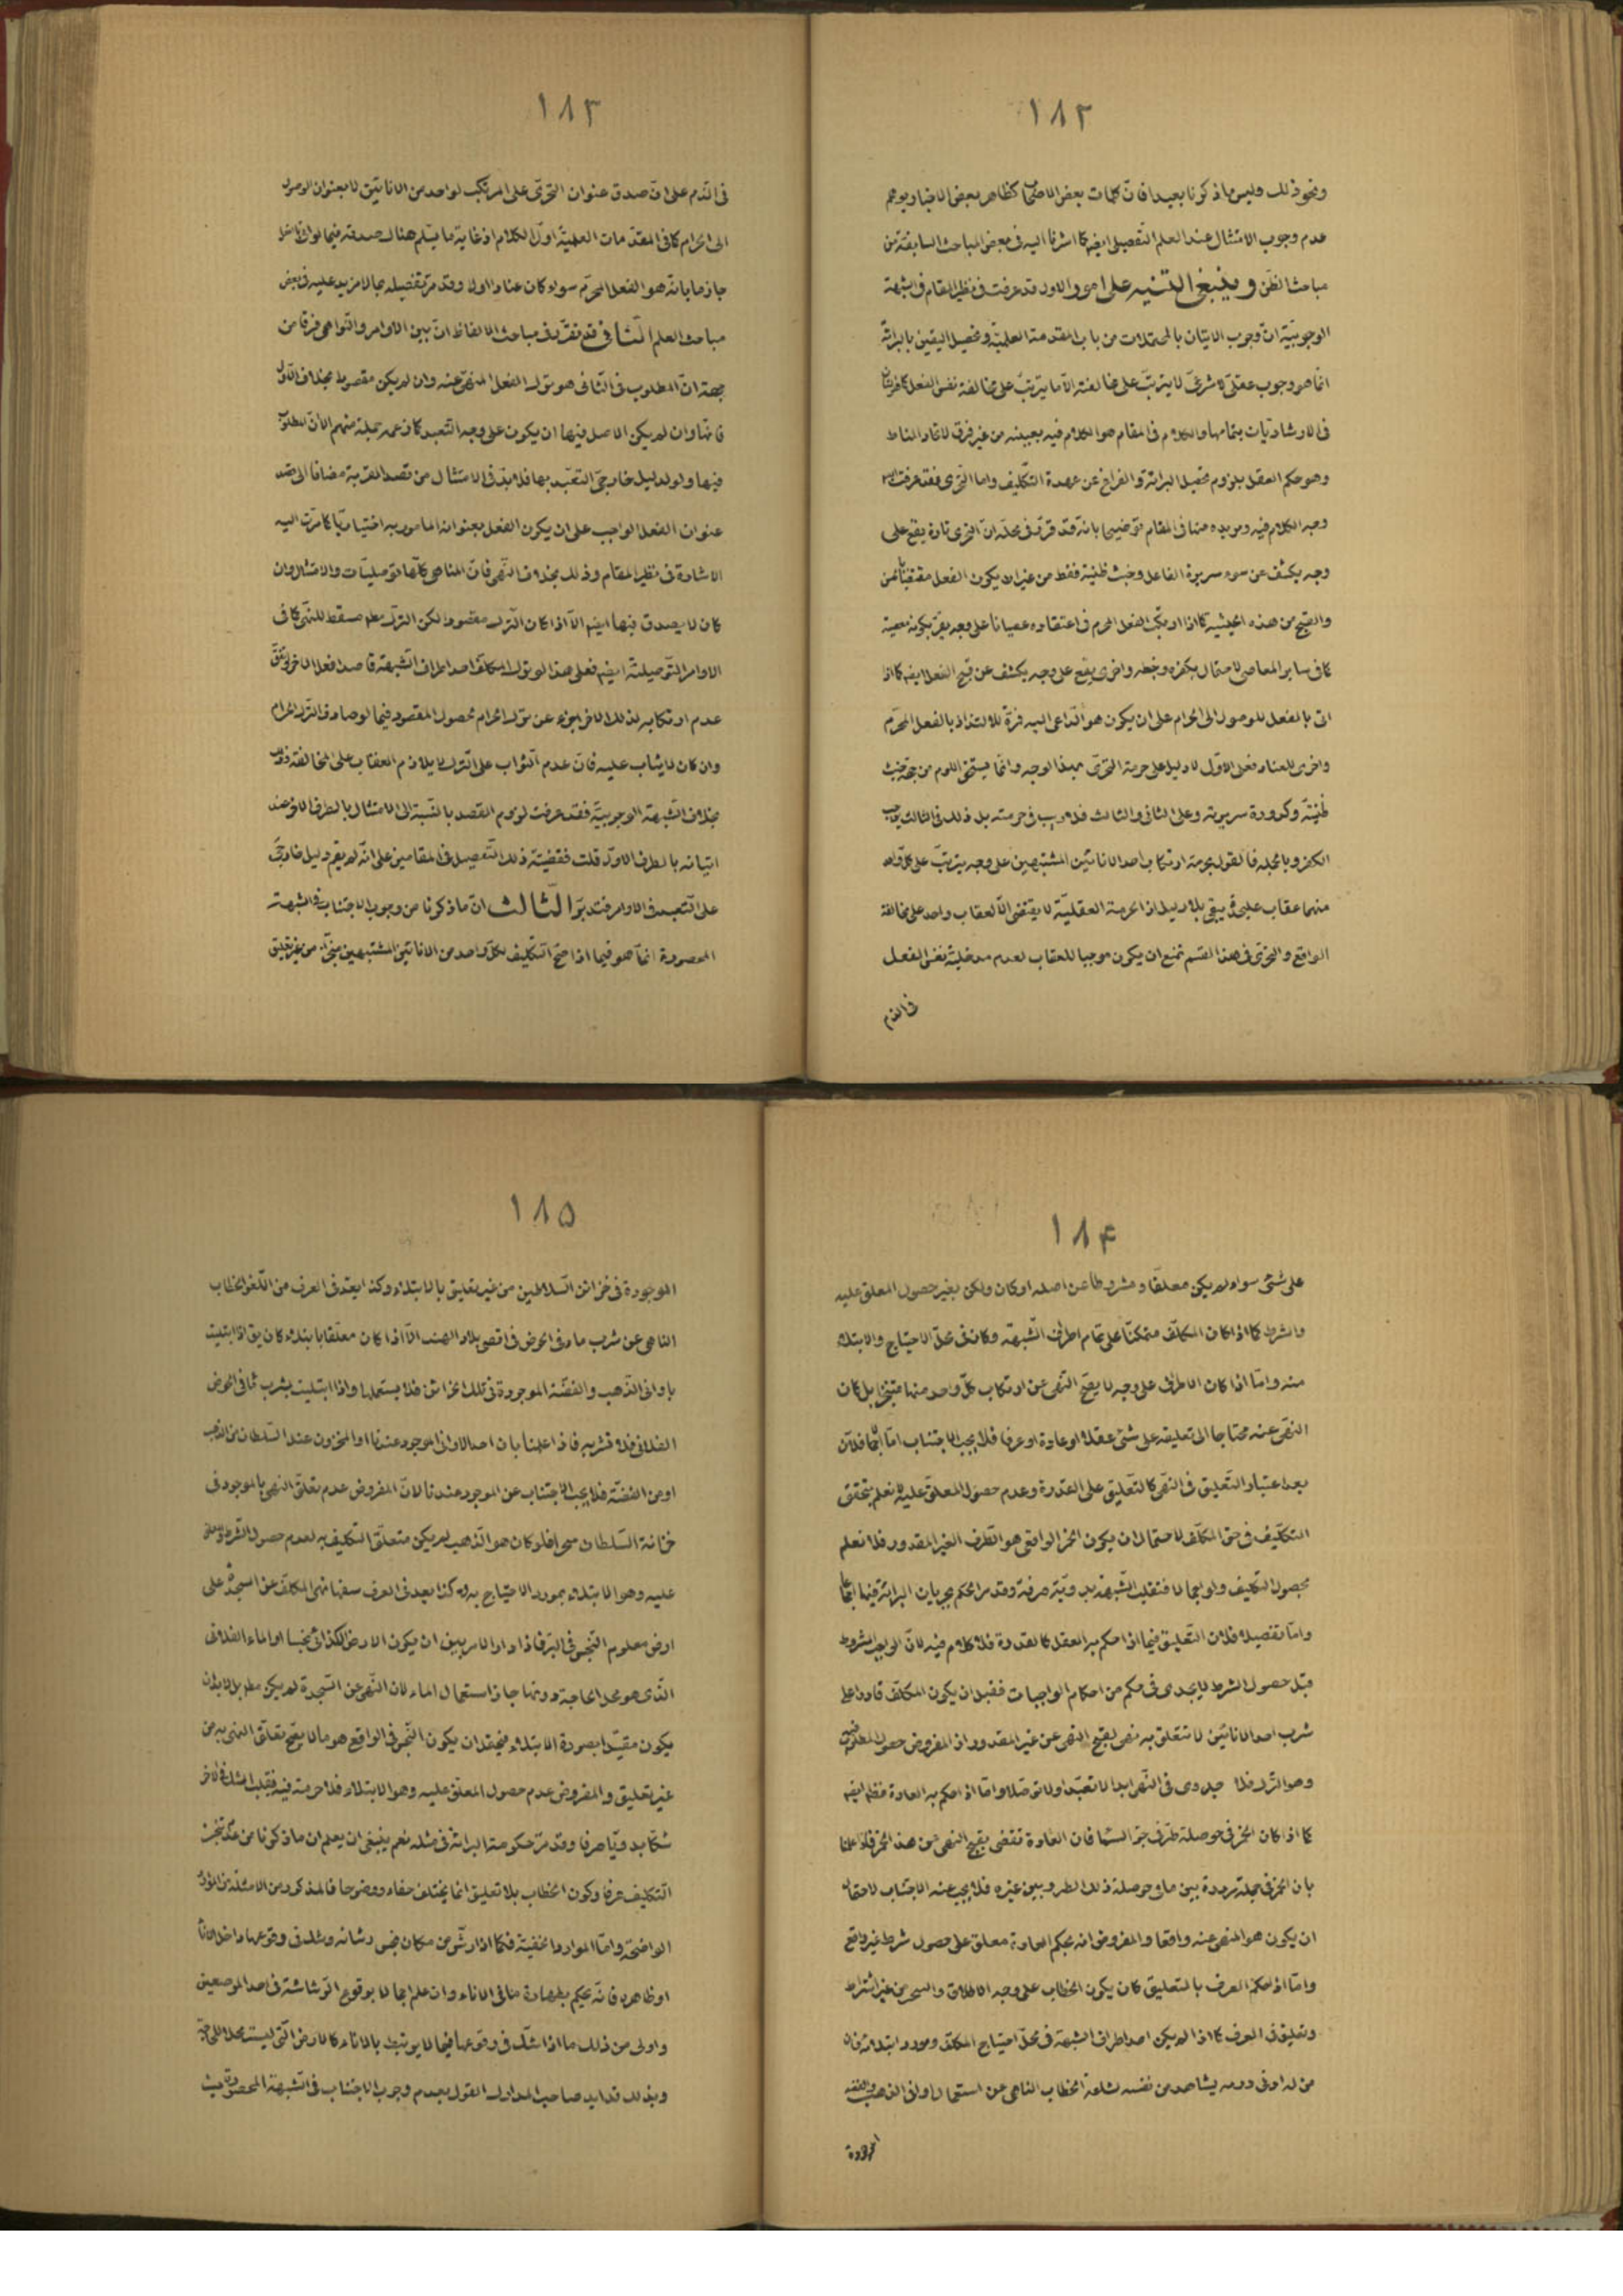 ١٨٢
ونحو ذلك وليس ما ذكرنا بعيدا فانّ كلمات بعض الاصحاب كظاهر بعض الاخبار يوهم
عدم وجوب الامتثال عند العلم التفصيلى ايضا كما اشرنا اليه فى بعض المباحث السابقة من
مباحث الظن وينبغى التنبيه على امور الاول قد عرفت فى نظير المقام فى الشبهة
الوجوبيّة انّ وجوب الاتيان بالمحتملات من باب المقدمة العلميّة وتحصيل اليقين بالبرائة
انّما هو وجوب عقلىّ لا شرعىّ لا يترتّب على مخالفته الّا ما يترتّب على مخالفة نفس الفعل كما هو الشأن
فى الارشاديات بتمامها والكلام فى المقام هو الكلام فيه بعينه من غير فرق لاتحاد المناط
وهو حكم العقل بلزوم تحصيل البرائة والفراغ عن عهدة التّكليف واما التجرى فقد عرفت
وجه الكلام فيه ونزيده هنا فى المقام توضيحا بانّه قد قرّر فى محلّه انّ التجرى تارة يقع على
وجه يكشف عن سوء سريرة الفاعل وخبث طينته فقط من غير ان يكون الفعل
والقبح من هذه الحيثيه كما اذا ارتكب الفعل المحرم فى اعتقاده عصيانا على وجه يقرّ بكونه معصية
كما فى ساير المعاصى لاحتمال بكفره وخطره واخرى يقع على وجه يكشف عن قبح الفعل ايضا كما اذا
اتى بالفعل للوصول الى الحرام على ان يكون هو الدّاعى اليه فتارة للالتذاذ بالفعل المحرّم
واخرى للعناد فعلى الاوّل لا دليل على حرمة التجرّى بهذا الوجه وانّما يستحقّ اللوم من جهة خبث
طينته وكدورة سريرته وعلى الثانى والثالث فلا ريب فى حرمته بل ذلك فى الثالث يوجب
الكفر وبالجملة فالقول بحرمة ارتكاب احد الانائين المشتبهين على وجه يترتّب على كلّ واحد
منهما عقاب عليحدّ يبقى بلا دليل اذ الحرمة العقليّة لا يقتضى الّا لعقاب واحد على مخالفة
الواقع والتجرّى فى هذا القسم نمنع ان يكون موجبا للعقاب لعدم مدخلية نفس الفعل
فى الذم
١٨٣
فى الذّم على انّ صدق عنوان التجرّى على المرتكب لواحد من الانائين لا بعنوان الوصول
الى الحرام كما فى المقدّمات العلميّة اوّل الكلام اذ غاية ما يسلم هناك صدقه فيما لو ارتكبه
جازما بانّه هو الفعل المحرّم سواء كان عنادا اولا وقد مرّ تفصيله بما لا مزيد عليه فى بعض
مباحث العلم الثانى قد تقرّر فى مباحث الالفاظ انّ بين الاوامر والنّواهى فرقا من
جهة انّ المطلوب فى الثانى هو ترك الفعل المنهىّ عنه وان لم يكن مقصودا بخلاف الاوّل
فانّها وان لم يكن الاصل فيها ان يكون على وجه التعبد كما زعمه جملة منهم الّا انّ المطلوب
فيها ولو لدليل خارجىّ التعبّد بها فلا بدّ فى الامتثال من قصد القربة مضافا الى قصد
عنوان الفعل الواجب على ان يكون الفعل بعنوانه المأمور به اختياريّا كما مرّت اليه
الاشارة فى نظير المقام وذلك بخلاف النّهى فانّ المناهى كلّها توصليّات والامتثال وان
كان لا يصدق فيها ايضا الّا اذا كان الترك مقصودا لكن الترك مطلقا مسقط للنّهى كما فى
الاوامر التّوصليّة ايضا فعلى هذا لو ترك المكلّف احد اطراف الشّبهة قاصدا فعل الاخر واتّفق
عدم ارتكابه لذلك الاخر اجزءه عن ترك الحرام لحصول المقصود فيما لو صادف الترك الحرام
وان كان لا يثاب عليه فانّ عدم الثواب على الترك لا يلازم العقاب على المخالفة وذلك
بخلاف الشّبهة الوجوبيّة فقد عرفت لزوم القصد بالنّسبة الى الامتثال بالطرف الاخر عند
اتيانه بالطرف الاوّل قلت فقضيّة ذلك التّفصيل فى المقامين على انّه لم يقم دليل خارجىّ
على التّعبد فى الاوامر فتدبّر الثّالث انّ ما ذكرنا من وجوب الاجتناب فى الشبهة
المحصورة انّما هو فيما اذا صحّ التّكليف بكلّ واحد من الانائين المشتبهين منجّزا من غير تعليق
١٨٤
على شئ سواء لم يكن معلّقا ومشروطا عن اصله او كان ولكن بغير حصول المعلق عليه
والشرط كما اذا كان المكلّف متمكّنا على تمام اطراف الشّبهة وكان فى محلّ الاحتياج والابتلاء
منه وامّا اذا كان الاطراف على وجه لا يصحّ النّهى عن ارتكاب كلّ واحد منها منجّزا بل كان
النّهى عنه محتاجا الى تعليقه على شئ عقلا او عادة او عرفا فلا يجب الاجتناب امّا اجمالا فلانّ
بعد اعتبار التّعليق فى النّهى كالتّعليق على القدرة وعدم حصول المعلّق عليه لا نعلم بتحقق
التكليف فى حق المكلّف لاحتمال ان يكون الخمر الواقعى هو الطّرف الغير المقدور فلا نعلم
بحصول التكليف ولو اجمالا فتقلب الشّبهة بدويّة صرفة وقد مرّ الحكم بجريان البرائة فيها
وامّا تفصيلا فلان التّعليق فيما اذا حكم به العقل كالقدرة فلا كلام فيه لانّ الواجب المشروط
قبل حصول الشرط لا يجدى فى حكم من احكام الواجبات فقبل ان يكون المكلّف قادرا على
شرب احد الانائين لا تتعلّق به نهى لقبح النّهى عن غير المقدور اذ المفروض حصول المطلوب
وهو الترك فلا جدوى فى النّهى ابدا لا تعبّدا ولا توصّلا وامّا اذا حكم به العادة فظاهر ايضا
كما اذا كان الخمر فى حوصلة طير فى جوّ السّما فان العادة تقضى بقبح النهى عن هذا الخمر فلو علمنا
بان الخمر فى جملة مرددة بين ما فى حوصلة ذلك الطير وبين غيره فلا يجب عنه الاجتناب لاحتمال
ان يكون هو المنهى عنه واقعا والمفروض انه بحكم العادة معلق على حصول شرط غير واقع
وامّا اذا حكم العرف بالتعليق كان يكون الخطاب على وجه الاطلاق والتنجيز من غير اشتراط
وتعليق فى العرف كما اذا لم يكن احد اطراف الشبهة فى محلّ احتياج المكلّف ومورد ابتلائه فان
من له ادنى دربه يشاهد من نفسه بشاعة الخطاب الناهى عن استعمال اوانى الذهب والفضه
الموجودة
١٨٥
الموجودة فى خزائن السّلاطين من غير تعليق بالابتلاء وكذا يعدّ فى العرف من اللّغو الخطاب
الناهى عن شرب ماء فى الحوض فى اقصى بلاد الهند الّا اذا كان معلّقا بابتلائه كان يق اذا ابتليت
باوانى الذّهب والفضّة الموجودة فى تلك الخزائن فلا يستعملها واذا ابتليت بشرب ماء فى الحوض
الفلانى فلا تشربه فاذا علمنا بان احد الاوانى الموجود عندنا او المخزون عند السّلطان من الذهب
او من الفضّة فلا يجب الاجتناب عن الموجود عندنا لانّ المفروض عدم تعلّق النهى بالموجود فى
خزانة السّلطان حتى فلو كان هو الذّهب لم يكن متعلّق التكليف به لعدم حصول الشّرط والمعلّق
عليه وهو الابتلاء بمورد الاحتياج به وكذا يعد فى العرف سفها نهى المكلّف عن السجدة على
ارض معلوم النّجس فى البرّ فاذا دار الامر بين ان يكون الارض الكذائى نجسا او الماء الفلانى
الذّى هو محل الحاجة دونها جاز استعمال الماء لان النّهى عن السّجدة لم يكن مطلقا بل لا بد ان
يكون مقيّدا بصورة الابتلاء فيحتمل ان يكون النّجس فى الواقع هو ما لا يصحّ تعلّق النهى به من
غير تعليق والمفروض عدم حصول المعلّق عليه وهو الابتلاء فلا حرمة فيه فيقلب الشك فى الاخر
شكّا بدويّا صرفا وقد مرّ حكومة البرائة فى مثله نعم ينبغى ان يعلم ان ما ذكرنا من عدم تنجّز
التّكليف عرفا وكون الخطاب بلا تعليق انما يختلف خفاء ووضوحا فالمذكور من الامثلة من الموارد
الواضحة وامّا الموارد الخفيّة فكما اذا رشّ من مكان نجس رشاشة وشك فى وقوعها داخل الاناء
او ظاهره فانّه يحكم بطهارة ما فى الاناء وان علم اجمالا بوقوع الرّشاشة فى احد الموضعين
واولى من ذلك ما اذا شكّ فى وقوعها فيما لا يرتبط بالاناء كالارض الّتى ليست محلا للحاجة
وبذلك قد ايد صاحب المدارك القول بعدم وجوب الاجتناب فى الشّبهة المحصورة حيث